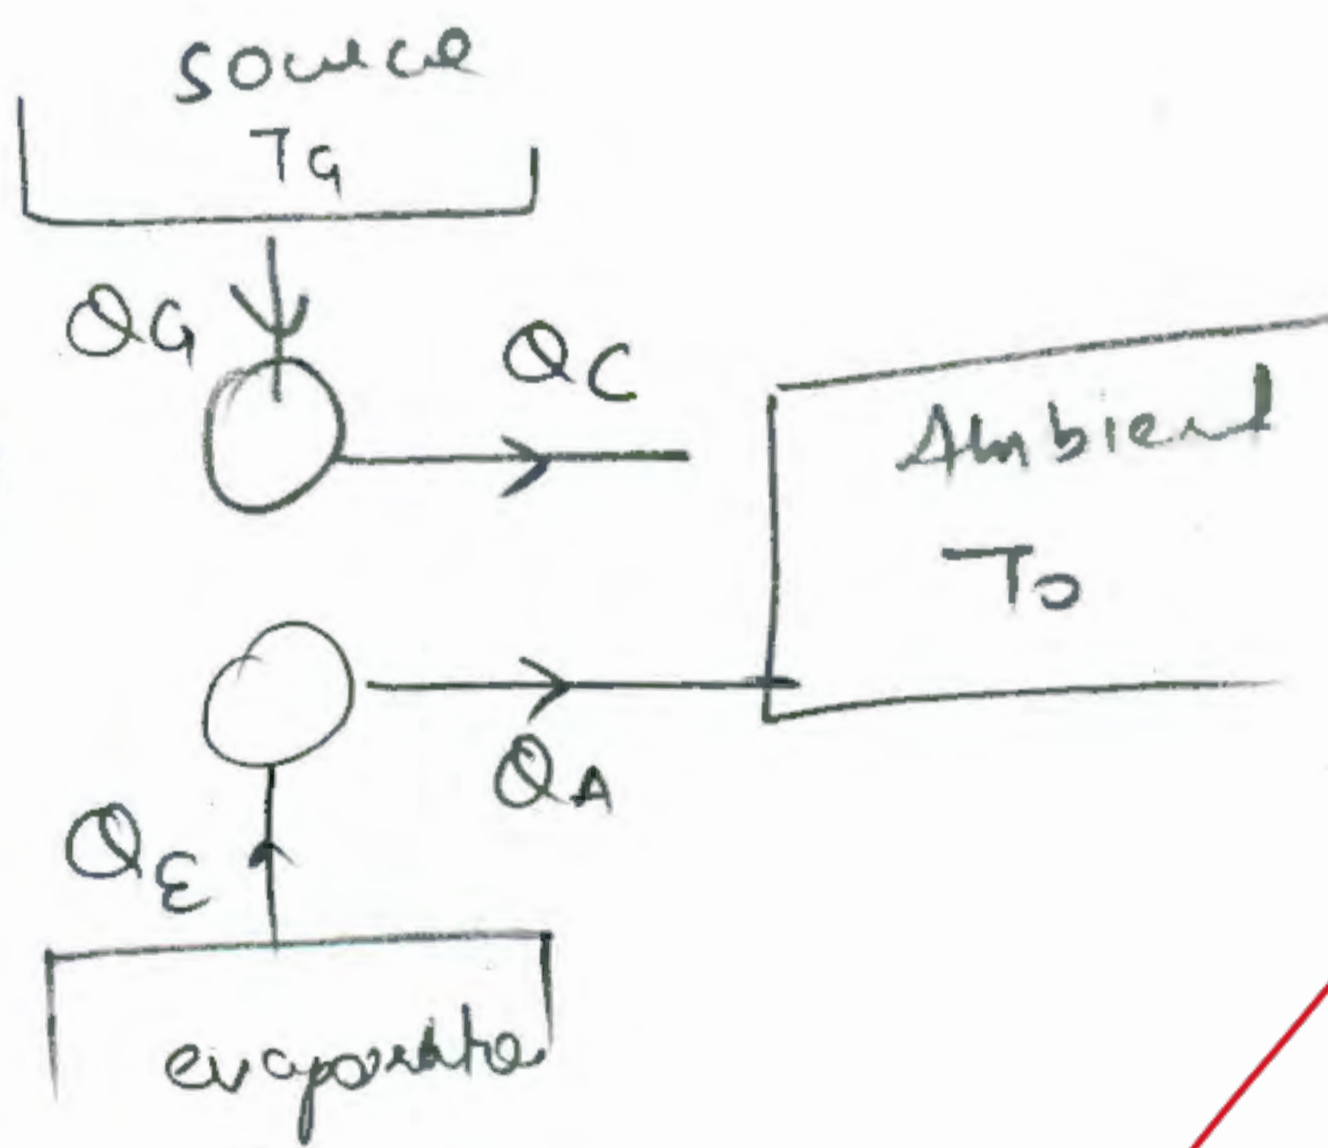 source
TG
QG
QC
Ambient
To
QA
QE
evaporator